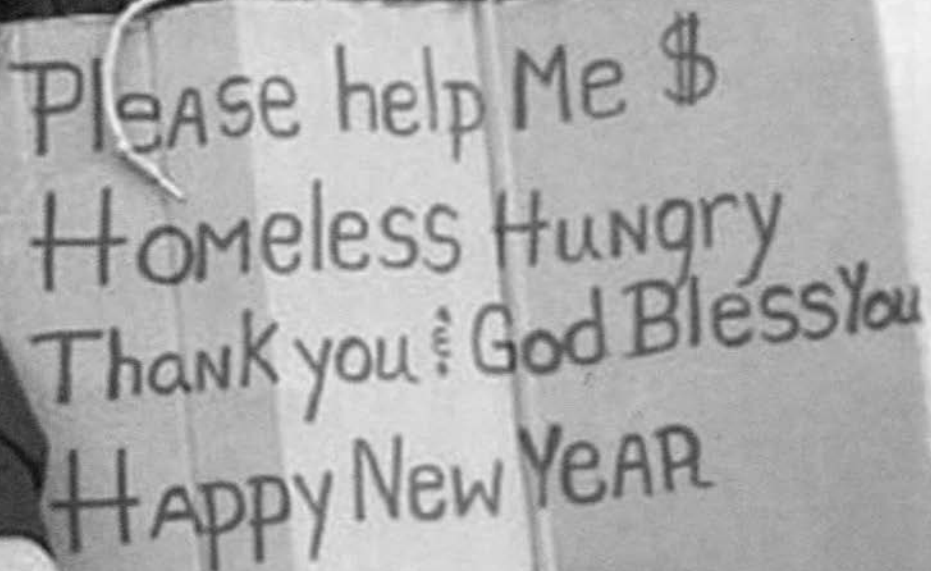 PleAse help Me $
HoMeless HuNgry
ThaNk you & God Bless You
HAppy New YeAR